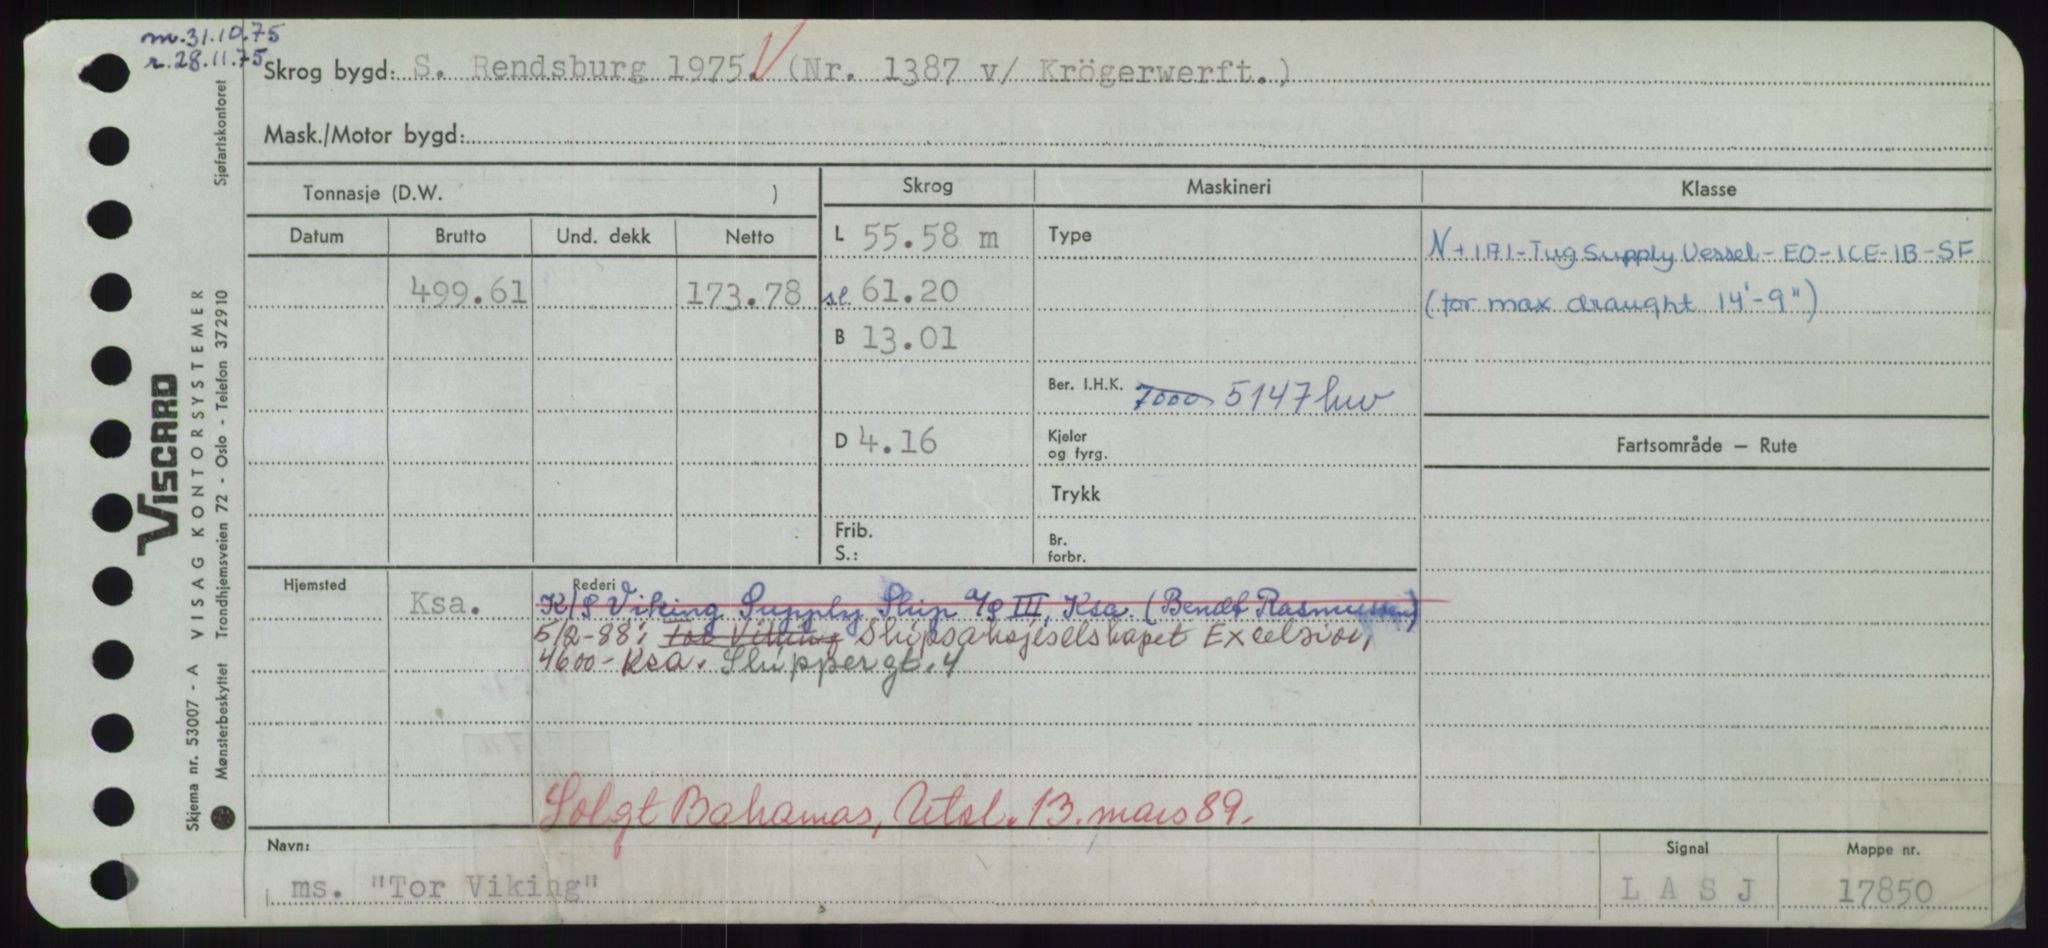 m. 31.10.75
r. 28.11.75
Skrog bygd: S. Rendsburg 1975. (Nr. 1387 v/ Krögerwerft.)
Mask./Motor bygd:
Tonnasje (D.W. )
Skrog
Maskineri
Klasse
Datum
Brutto
Und. dekk
Netto
499.61
173.78
L 55.58 m
sl. 61.20
B 13.01
D 4.16
Frib.
S.:
Type
Ber. I.H.K. 7000 5147 hw
Kjeler
og fyrg.
Trykk
Br.
forbr.
N+1A1-Tug Supply Vessel-EO-ICE-1B-SF
(for max draught 14'-9")
Fartsområde – Rute
Hjemsted
Ksa.
Rederi
K/S Viking Supply Ship A/S III, Ksa. (Bendt Rasmussen)
5/2-88: Tor Viking Skipsaksjeselskapet Excelsior,
4600- Ksa. Skippergt. 4
Solgt Bahamas, Utsl. 13. mars 89.
Navn:
ms. "Tor Viking"
Signal
L A S J
Mappe nr.
17850
VISCARD
Skjema nr. 53007 - A VISAG KONTORSYSTEMER
Mønsterbeskyttet Trondhjemsveien 72 - Oslo - Telefon 372910
Sjøfartskontoret